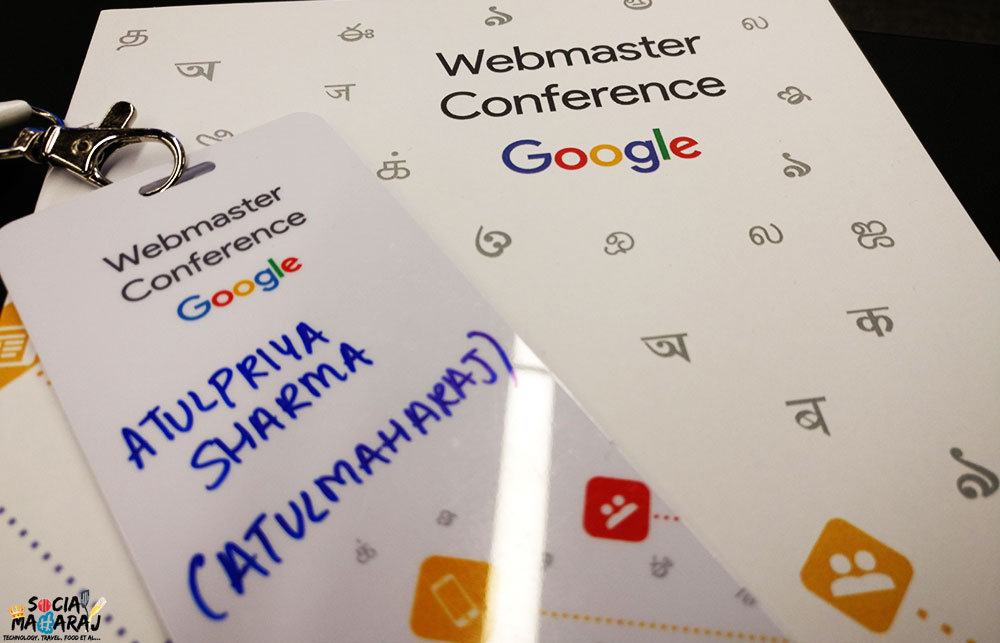 த ఠః ঌ ல
અ ज
Webmaster
Conference
Google
க்
ல ஜ
अ क
ब
Webmaster
Conference
Google
ATULPRIYA
SHARMA
(ATULMAHARAJ)
SOCIAL
MAHARAJ
TECHNOLOGY, TRAVEL, FOOD ET AL...